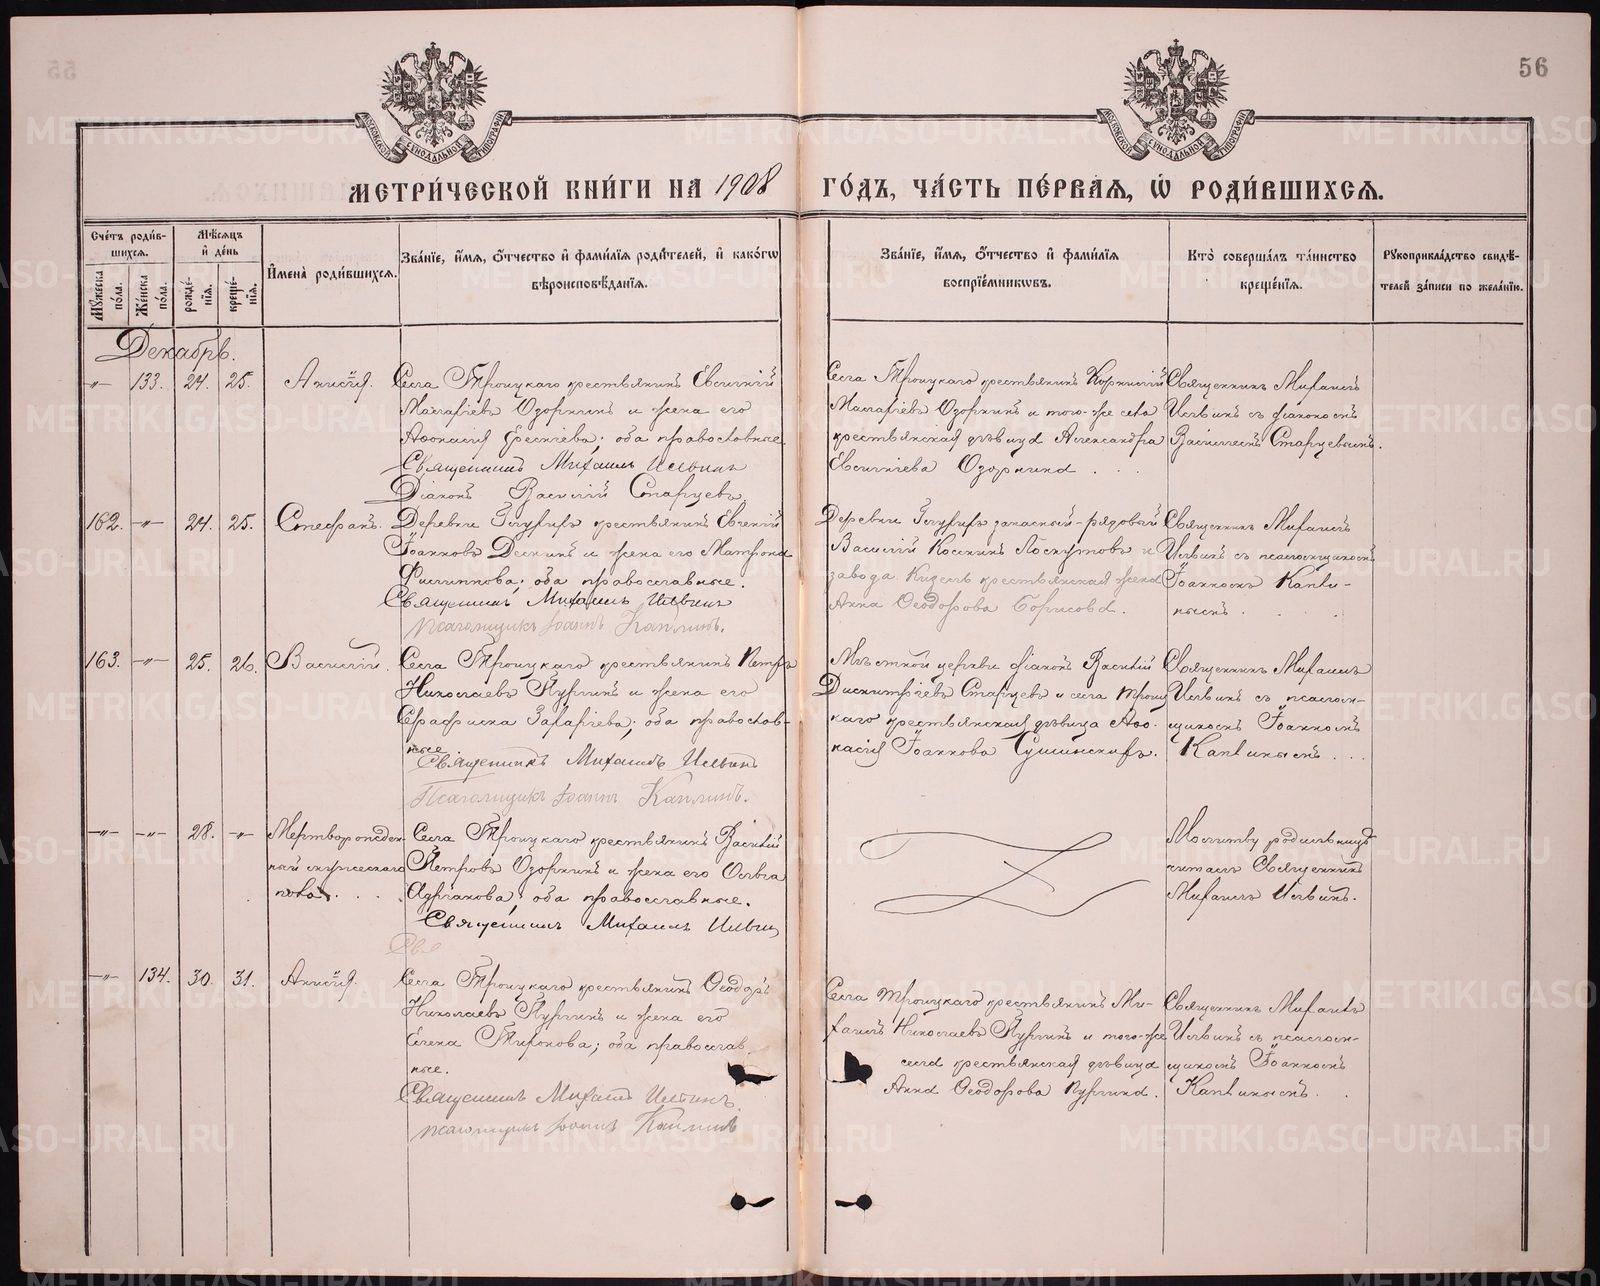 56
МОСКОВСКОЙ СѴНОДАЛЬНОЙ ТИПОГРАФІИ
МОСКОВСКОЙ СѴНОДАЛЬНОЙ ТИПОГРАФІИ
МЕТРИ́ЧЕСКОЙ КНИ́ГИ НА 1908 ГО́ДЪ, ЧА́СТЬ ПЕ́РВАѦ, Ѡ РОДИ́ВШИХСѦ.
Сче́тъ роди́вшихсѧ.
Мꙋ́жеска по́ла.
Же́нска по́ла.
Мѣ́сѧцъ и҆ де́нь
рожде́нїѧ.
креще́нїѧ.
И҆мена̀ роди́вшихсѧ.
Зва́нїе, и҆́мѧ, ѻ҆́тчество и҆ фами́лїѧ роди́телей, и҆ како́гѡ
вѣроисповѣ́данїѧ.
Зва́нїе, и҆́мѧ, ѻ҆́тчество и҆ фами́лїѧ
воспрїе́мникѡвъ.
Кто̀ соверша́лъ та́инство
креще́нїѧ.
Рꙋкоприкла́дство свидѣ́-
телей за́писи по жела́нїю.
Декабрь.
-"- 133. 24. 25. Анисія.
Села Троицкаго крестьянинъ Евсигній
Озорнинъ и жена его
оба православные
Священникъ Михаилъ Ильинъ
Діаконъ Василій Старцевъ
Села Троицкаго крестьянинъ Корнилій
Озорнинъ и того-же села
крестьянская дѣвица Александра
Евсигніева Озорнина . . .
Священникъ Михаилъ
Ильинъ съ діакономъ
Василіемъ Старцевымъ.
162. -"- 24. 25. Стефанъ.
Деревни крестьянинъ Евгеній
Іоанновъ и жена его Матрона
Филиппова; оба православные.
Священникъ Михаилъ Ильинъ
Псаломщикъ Іоаннъ Каплинъ.
Деревни запасный рядовый
Василій Лоскутовъ и
завода крестьянская жена
Анна Ѳеодорова Борисова.
Священникъ Михаилъ
Ильинъ съ псаломщикомъ
Іоанномъ Капли-
нымъ . .
163. -"- 25. 26. Василій.
Села Троицкаго крестьянинъ Петръ
Николаевъ Пургинъ и жена его
Серафима Захаріева; оба православ-
ные
Священникъ Михаилъ Ильинъ
Псаломщикъ Іоаннъ Каплинъ.
Мѣстной церкви діаконъ Василій
Димитріевъ Старцевъ и села Троиц-
каго крестьянская дѣвица Аѳо-
насія Іоаннова
Священникъ Михаилъ
Ильинъ съ псалом-
щикомъ Іоанномъ
Каплинымъ . . .
-"- -"- 28. -"- Мертворожден-
ный мужескаго
пола. . . .
Села Троицкаго крестьянинъ Василій
Петровъ Озорнинъ и жена его Ольга
Адріанова; оба православные.
Священникъ Михаилъ Ильинъ
Свя
Молитву родильницѣ
читалъ Священникъ
Михаилъ Ильинъ.
-"- 134. 30. 31. Анисія.
Села Троицкаго крестьянинъ Ѳеодоръ
Николаевъ Пургинъ и жена его
Елена оба православ-
ные.
Священникъ Михаилъ Ильинъ.
псаломщикъ Іоаннъ Каплинъ
Села Троицкаго крестьянинъ Ми-
хаилъ Николаевъ Пургинъ и того-же
села крестьянская дѣвица
Анна Ѳеодорова Пургина.
Священникъ Михаилъ
Ильинъ съ псалом-
щикомъ Іоанномъ
Каплинымъ. .
METRIKI.GASO-URAL.RU